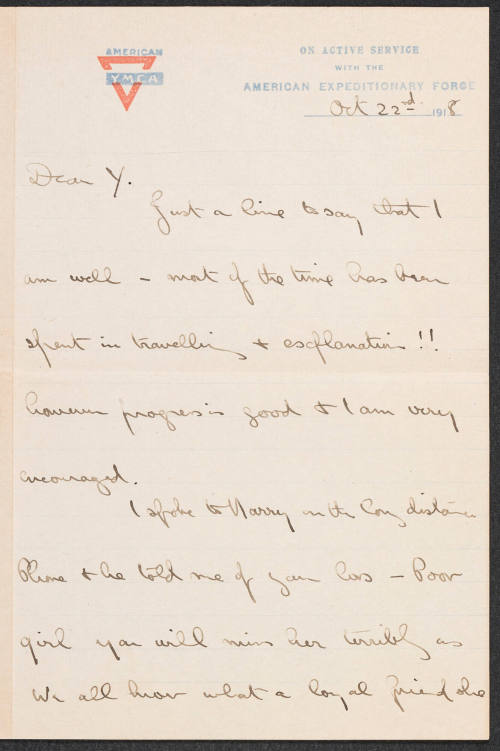 AMERICAN
YMCA
ON ACTIVE SERVICE
WITH THE
AMERICAN EXPEDITIONARY FORCE
Oct 22nd 1918
Dear Y.
Just a line to say that I
am well - most of the time has been
spent in travelling & explanations!!
however progress is good & I am very
encouraged.
I spoke to Harry on the long distance
Phone & he told me of your loss - Poor
girl you will miss her terribly as
we all know what a loyal friend she